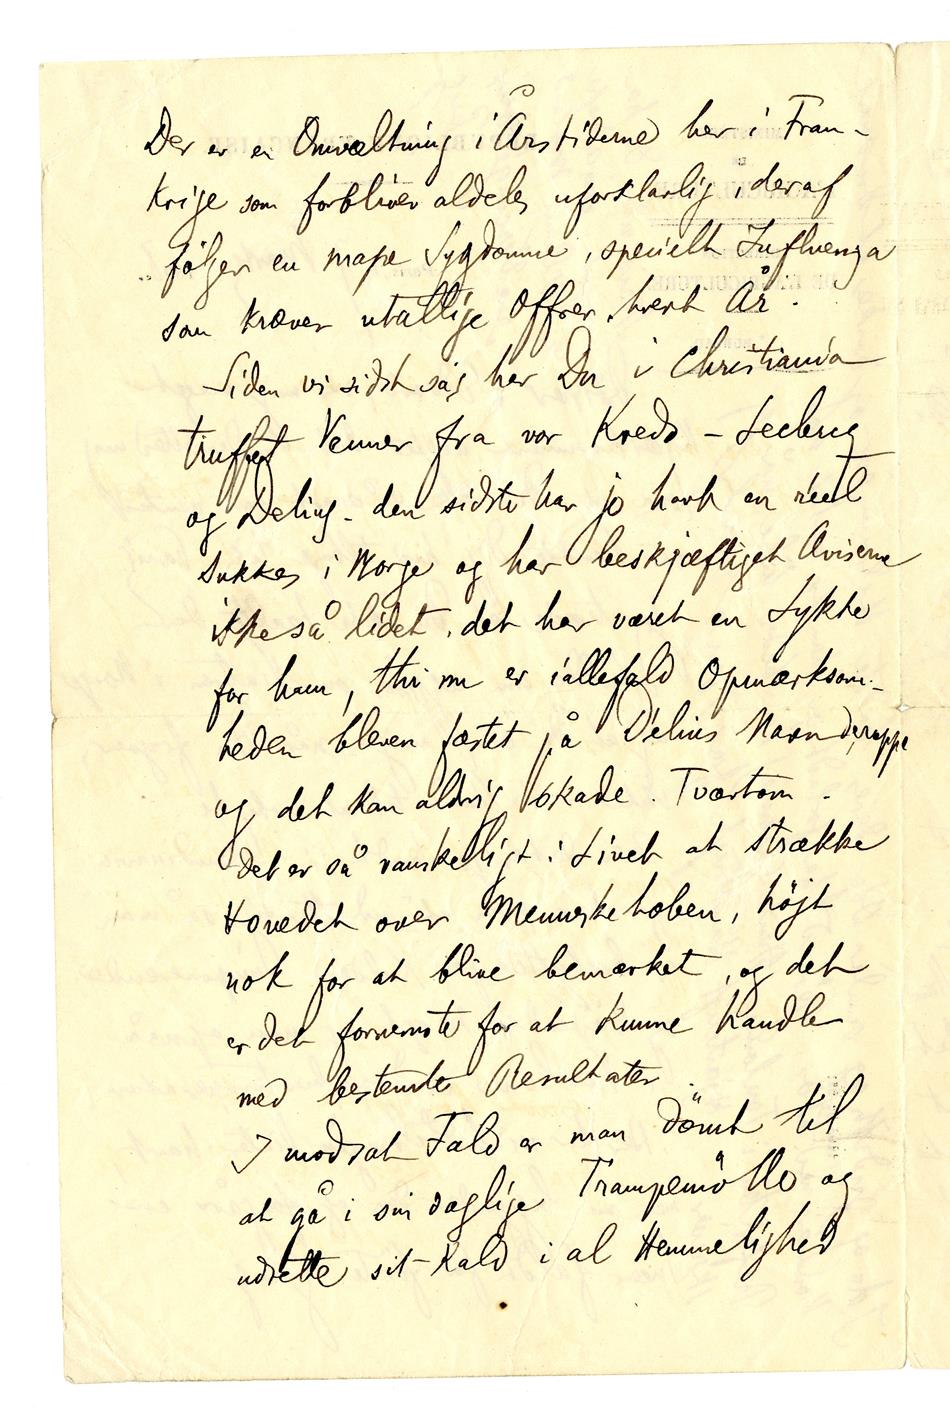 Der er en Omvæltning i Årstiderne her i Fran-
krige som forbliver aldeles uforklarlig, deraf
følger en mase Sygdomme, specielt Influenza
som kræver utallige Offrer hvert År.
Siden vi sidst såes har Du i Christiania
truffet Venner fra vor Kreds - Leclerq
og Delius - den sidste har jo havt en reel
Sukkes i Norge og har beskjæftiget Aviserne
ikke så lidet, det har været en Lykke
for ham, thi nu er iallefald Opmærksom-
heden bleven fæstet på Delius Navn deroppe
og det kan aldrig skade. Tværtom.
det er så vanskeligt i Livet at strække
Hovedet over Menneskehoben, højt
nok for at blive bemærket, og det
er det fornemste for at kunne handle
med bestemte Resultater.
I modsat Fald er man dömt til
at gå i sin daglige Trampemölle og
udrette sit Kald i al Hemmelighed